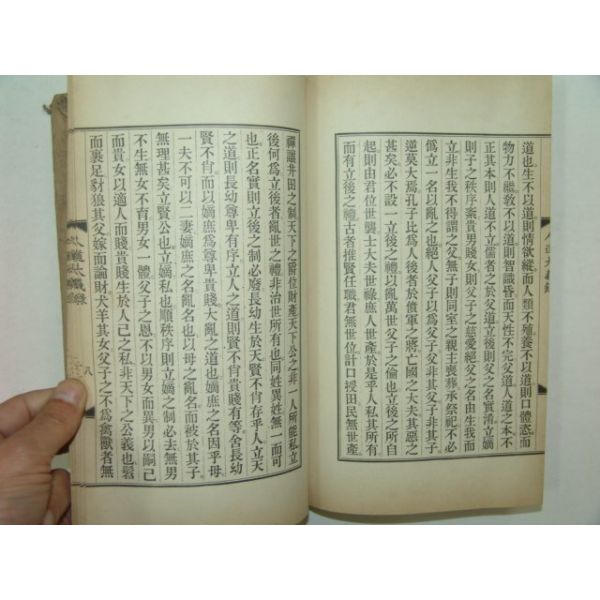 道也生不以道則情欲縱而人類不殖養不以道則口體恣而
物力不繼敎不以道則智識昏而天性不完父道人道之本不
正其本則人道不立儒者之於父道立後則父之名實淆立嫡
則子之秩序紊貴男賤女則父之慈愛絕父之名由生我而
立非生我不得謂之父無子則同室之親主喪葬承祭祀不必
僞立一名以亂之也絕人父子以為父子父子非其子
逆莫大焉孔子比為人後者於僨軍之將亡國之大夫其惡之
甚矣必不設一立後之禮以亂萬世父子之倫也立後之所自
起則由君位世襲士大夫世祿庶人世產於是乎人私其所有
而有立後之禮古者推賢任職君無世位計口授田民無世產
禪讓井田之制天下之爵位財產天下公之非一人所能私立
後何為立後者亂世之禮非治世所有也同姓異姓無一而可
也正名實則立後之制必廢長幼生於天賢不肖存乎人立天
之道則長幼尊卑有序立人之道則賢不肖貴賤有等舍長幼
賢不肖而以嫡庶為尊卑貴賤大亂之道也嫡庶之名因乎母
一夫不可以二妻嫡庶之名亂名也以母之亂名而被於其子
無理甚矣立賢公也立嫡私也順秩序則立嫡之制必去無男
不生無女不育男女一體父子之恩不以男女而異男以嗣己
而貴女以適人而賤貴賤生於人己之私非天下之公義也鬻
而裹足豺狼其父嫁而論財犬羊其女父子之不為禽獸者無
人道大義錄
八
人道大義錄